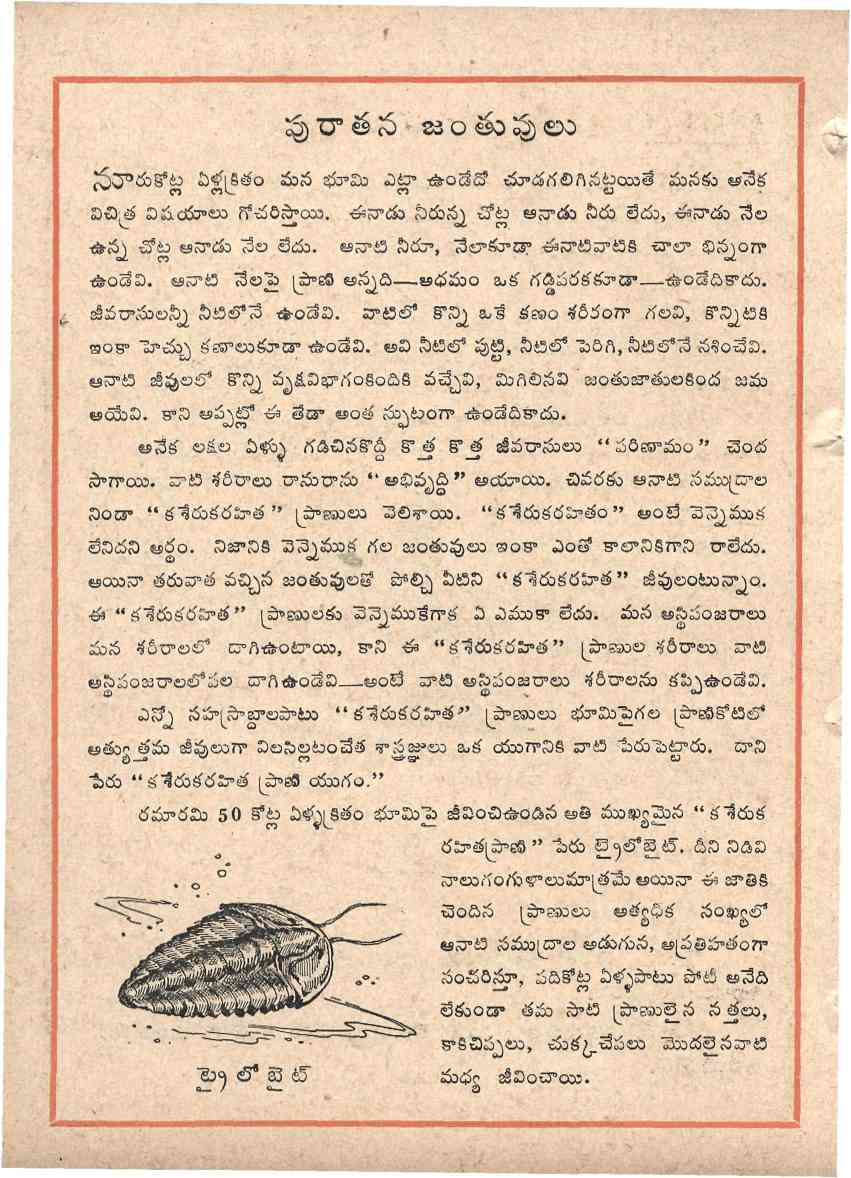 పురాతన జంతువులు
నూరుకోట్ల ఏళ్లక్రితం మన భూమి ఎట్లా ఉండేదో చూడగలిగినట్టయితే మనకు అనేక
విచిత్ర విషయాలు గోచరిస్తాయి. ఈనాడు నీరున్న చోట్ల ఆనాడు నీరు లేదు, ఈనాడు నేల
ఉన్న చోట్ల ఆనాడు నేల లేదు. ఆనాటి నీరూ, నేలాకూడా ఈనాటివాటికి చాలా భిన్నంగా
ఉండేవి. ఆనాటి నేలపై ప్రాణి అన్నది—అధమం ఒక గడ్డిపరకకూడా—ఉండేదికాదు.
జీవరాసులన్నీ నీటిలోనే ఉండేవి. వాటిలో కొన్ని ఒకే కణం శరీరంగా గలవి, కొన్నిటికి
ఇంకా హెచ్చు కణాలుకూడా ఉండేవి. అవి నీటిలో పుట్టి, నీటిలో పెరిగి, నీటిలోనే నశించేవి.
ఆనాటి జీవులలో కొన్ని వృక్షవిభాగంకిందికి వచ్చేవి, మిగిలినవి జంతుజాతులకింద జమ
అయేవి. కాని అప్పట్లో ఈ తేడా అంత స్ఫుటంగా ఉండేదికాదు.
అనేక లక్షల ఏళ్ళు గడిచినకొద్దీ కొత్త కొత్త జీవరాసులు “పరిణామం” చెంద
సాగాయి. వాటి శరీరాలు రానురాను “అభివృద్ధి” అయాయి. చివరకు ఆనాటి సముద్రాల
నిండా “కశేరుకరహిత” ప్రాణులు వెలిశాయి. “కశేరుకరహితం” అంటే వెన్నెముక
లేనిదని అర్థం. నిజానికి వెన్నెముక గల జంతువులు ఇంకా ఎంతో కాలానికిగాని రాలేదు.
అయినా తరువాత వచ్చిన జంతువులతో పోల్చి వీటిని “కశేరుకరహిత” జీవులంటున్నాం.
ఈ “కశేరుకరహిత” ప్రాణులకు వెన్నెముకేగాక ఏ ఎముకా లేదు. మన అస్థిపంజరాలు
మన శరీరాలలో దాగిఉంటాయి, కాని ఈ “కశేరుకరహిత” ప్రాణుల శరీరాలు వాటి
అస్థిపంజరాలలోపల దాగిఉండేవి—అంటే వాటి అస్థిపంజరాలు శరీరాలను కప్పిఉండేవి.
ఎన్నో సహస్రాబ్దాలపాటు “కశేరుకరహిత” ప్రాణులు భూమిపైగల ప్రాణికోటిలో
అత్యుత్తమ జీవులుగా విలసిల్లటంచేత శాస్త్రజ్ఞులు ఒక యుగానికి వాటి పేరుపెట్టారు. దాని
పేరు “కశేరుకరహిత ప్రాణి యుగం.”
రమారమి 50 కోట్ల ఏళ్ళక్రితం భూమిపై జీవించిఉండిన అతి ముఖ్యమైన “కశేరుక
రహితప్రాణి” పేరు ట్రైలోబైట్. దీని నిడివి
నాలుగంగుళాలుమాత్రమే అయినా ఈ జాతికి
చెందిన ప్రాణులు అత్యధిక సంఖ్యలో
ఆనాటి సముద్రాల అడుగున, అప్రతిహతంగా
సంచరిస్తూ, పదికోట్ల ఏళ్ళపాటు పోటీ అనేది
లేకుండా తమ సాటి ప్రాణులైన నత్తలు,
కాకిచిప్పలు, చుక్కచేపలు మొదలైనవాటి
మధ్య జీవించాయి.
ట్రైలోబైట్